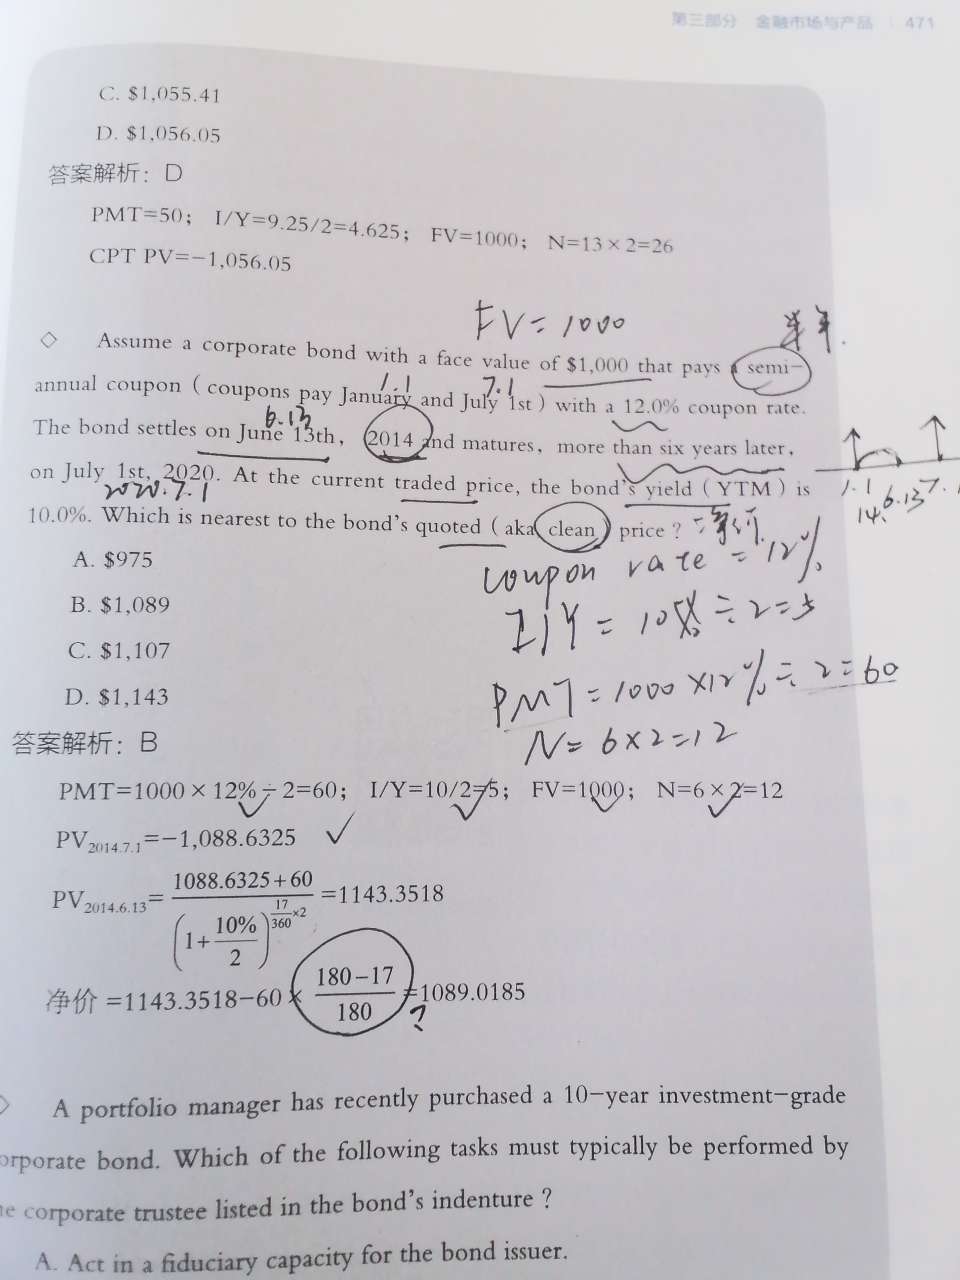 第三部分 金融市场与产品 | 471
C. $1,055.41
D. $1,056.05
答案解析：D
PMT=50； I/Y=9.25/2=4.625； FV=1000； N=13×2=26
CPT PV=−1,056.05
FV=1000
半年.
◇ Assume a corporate bond with a face value of $1,000 that pays a semi-
1.1 7.1
annual coupon ( coupons pay January and July 1st ) with a 12.0% coupon rate.
6.13
The bond settles on June 13th, 2014 and matures, more than six years later,
on July 1st, 2020. At the current traded price, the bond's yield ( YTM ) is
2020.7.1
1.1 6.13 7.1
14.
10.0%. Which is nearest to the bond's quoted ( aka clean ) price ?
A. $975
coupon rate = 12%
B. $1,089
I/Y = 10% ÷ 2 = 5
C. $1,107
PMT = 1000 × 12% ÷ 2 = 60
D. $1,143
N = 6×2=12
答案解析：B
PMT=1000×12%÷2=60； I/Y=10/2=5； FV=1000； N=6×2=12
PV2014.7.1=−1,088.6325 ✓
PV2014.6.13= (1088.6325+60) / (1+10%/2)^(17/360 ×2) =1143.3518
净价 =1143.3518−60× (180−17)/180 =1089.0185
?
◇ A portfolio manager has recently purchased a 10−year investment−grade
orporate bond. Which of the following tasks must typically be performed by
e corporate trustee listed in the bond's indenture ?
A. Act in a fiduciary capacity for the bond issuer.